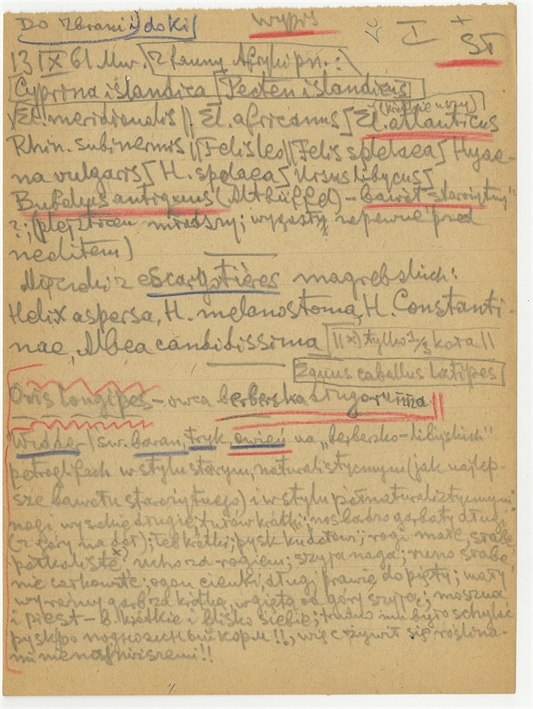 Do zbrani
Wypis
I
ST
13 IX 61 Mw. z fauny Afryki pn.:
Cyprina islandica Pecten islandicus
El. meridionalis || El. africanus El. atlanticus
Rhin. subinermis || Felis leo || Felis spelaea Hyae-
na vulgaris H. spelaea Ursus libycus
Bubalus antiquus (Altbüffel) - bawół starożytny"
?; (plejstocen młodszy; wygasły zapewne przed
neolitem)
Mięczaki z escargotières magrebskich:
Helix aspersa, H. melanostoma, H. Constanti-
nae, Albea candidissima tylko 1/3 koła ||
Equus caballus
Ovis longipes - owca berberska długo
Widder / św. baran, tryk, na „berbersko-libijskich"
petroglifach w stylu starym, naturalistycznym (jak najlep-
sze bawołu starożytnego) i w stylu półnaturalistycznym:
nogi wysokie długie; tułów krótki; nos bardzo garbaty długi
(z góry na dół); łeb krótki; pysk rogi małe, słabe
półkoliste, ucho za rogiem; szyja naga; runo słabe,
nie całkowite; ogon cienki, długi prawie do pięty; mały
wyraźny garb za krótką, wgiętą od góry szyją; moszna
i - b. krótkie i blisko siebie; trudno mu było schylać
pysk po !!, więc żywił się roślina-
mi !!